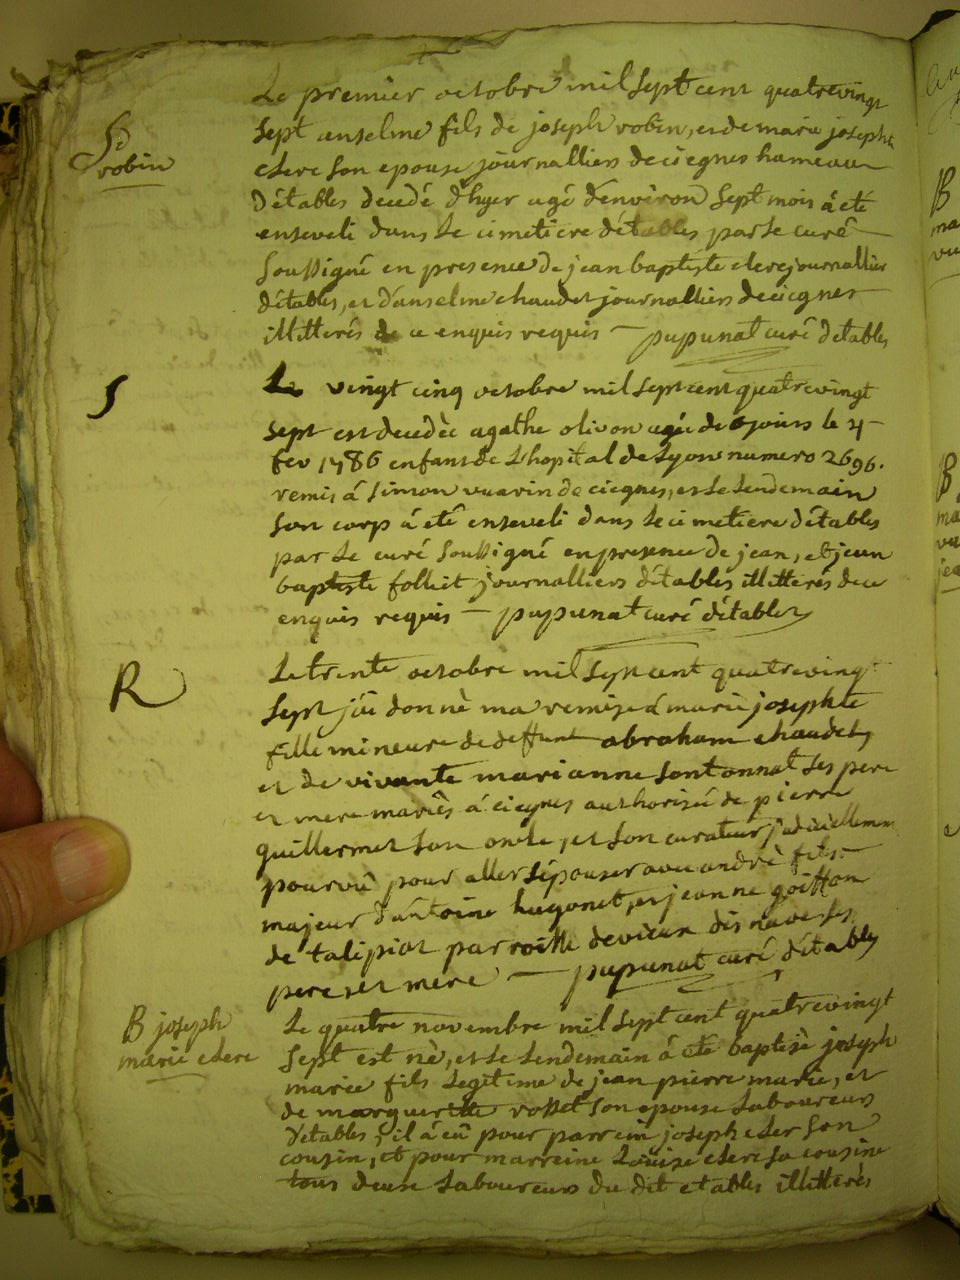 Le premier octobre mil sept cent quatrevingt
Se
robin
sept anselme fils de joseph robin, et de marie josephe
clerc son epouse journalliers de ciegnes hameau
d'etables decedé d'hyer agé d'environ sept mois à eté
enseveli dans le cimetiere d'étables par le curé
soussigné en presence de jean baptiste clerc journallier
d'étables, et d'anselme chaudet journalliers de ciegnes
illitterés de ce enquis requis — pupunat curé d'etables
S
Le vingt cinq octobre mil sept cent quatrevingt
sept est decedèe agathe olivon agée de 6 jours le 4
fev 1786 enfant de L'hopital de Lyon numero 2696.
remis á simon vuarin de ciegnes, et le lendemain
son corp à eté enseveli dans le cimetiere d'étables
par le curé soussigné en presence de jean, et jean
baptiste folliet journalliers d'étables illitterés de ce
enquis requis — pupunat curé d'étables
R
Le trente octobre mil sept cent quatrevingt
sept j'ai donnè ma remise á marie josephte
fille mineure de deffunt abraham chaudet,
et de vivante marianne sontonnat ses pere
et mere mariès á ciegnes authorisée de pierre
guillermet son oncle, et son curateur judiciellemen
pourvû pour aller s'épouser avec andrè fils
majeur d'antoine hugonet, et jeanne goiffon
de talipiat parroisse de vieux dis nave ses
pere et mere — pupunat curé d'étables
B joseph
marie clerc
Le quatre novembre mil sept cent quatrevingt
sept est nè, et le lendemain á eté baptisè joseph
marie fils legitime de jean pierre marie, et
de margueritte rosset son epouse laboureurs
d'etables, il á eû pour parrein joseph clerc son
cousin, et pour marreine Louise clerc sa cousine
tous deux laboureurs du dit etables illitterés